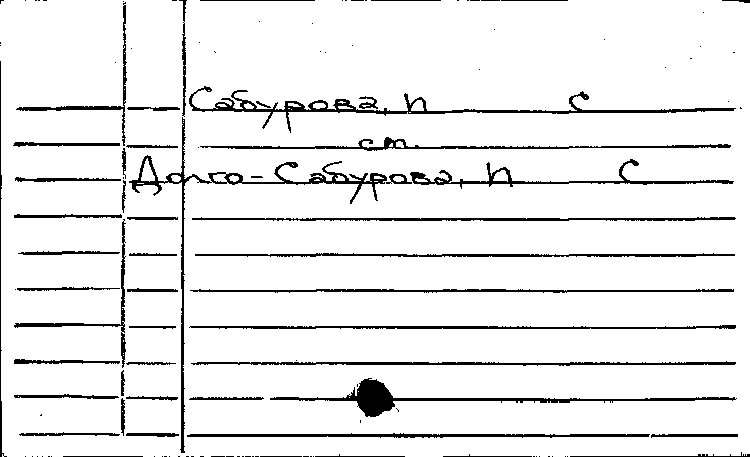 Сабурова, п С
ст.
Долго-Сабурова, п С